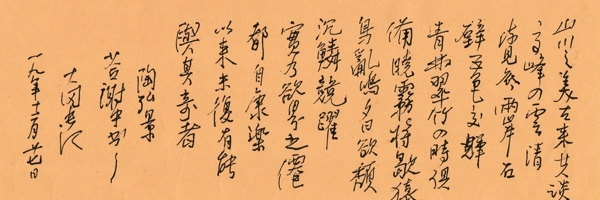 山川之美古来共談
高峰入雲清
流見底兩岸石
壁五色交輝
青林翠竹四時俱
備曉霧將歇猿
鳥亂鳴夕日欲頹
沉鱗競躍
實乃欲界之僊
都自康樂
以来未復有能
與其奇者
陶弘景
答謝中书
一九年十二月廿七日